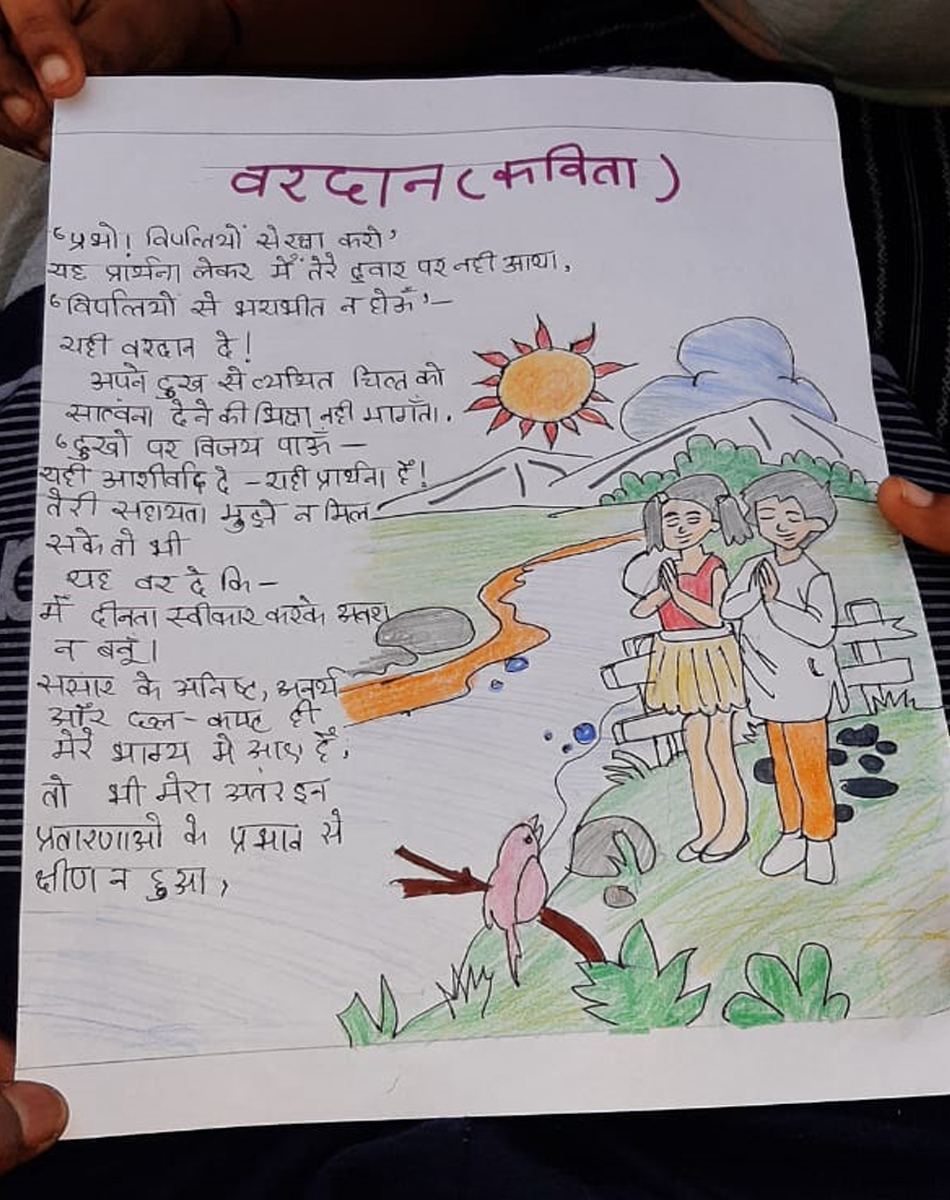 वरदान (कविता)
'प्रभो! विपत्तियों से रक्षा करो'
यह प्रार्थना लेकर मैं तेरे द्वार पर नही आया,
'विपत्तियों से भयभीत न होऊँ'—
यही वरदान दे!
अपने दुख से व्यथित चित्त को
सात्वंना देने की भिक्षा नही मागँता.
'दुखो पर विजय पाऊँ —
यही आशीर्वाद दे - यही प्रार्थना है!
तेरी सहायता मुझे न मिल
सके तो भी
यह वर दे कि -
मैं दीनता स्वीकार करके अवश
न बनूं।
संसार के अनिष्ट, अनर्थ
और छल - कपट ही
मेरे भाग्य मे आए हैं,
तो भी मेरा अतंर इन
प्रतारणाओ के प्रभाव से
क्षीण न हुआ,